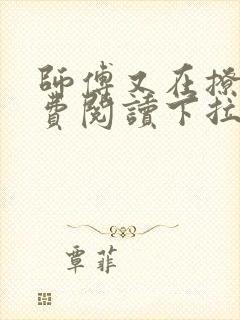 師傅又在撩
費閱讀下拉
覃菲